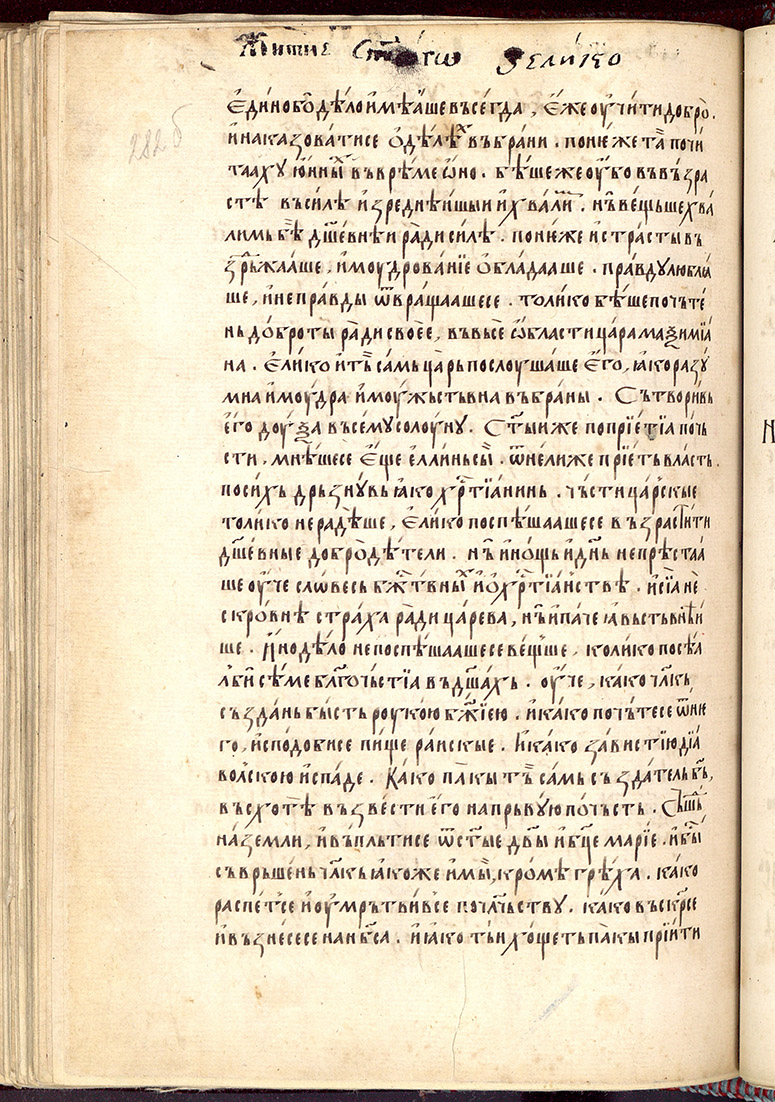 Житие Ст҃аго Велико
282б
є҆ди́но б҃оде́ло и҆мѣа́ше въсегда, є҆́же оу҆чи́ти добро̀.
и҆ наказоватисе ѻ҆ дѣ́лѣⷯ въ бра́ни. поню́же та̏ почи́
тааху ю҆́нныⷨ въ врѣ́ме ѡ҆́но. бѣ́ше же оу҆́бо въ въ́зра
стѣ̀ въ си́лѣ и҆ зреднѣ́ишыи и҆ хва́лиⷨ. нъ̏ ве́щьше хва́
лимь бѣ̏ дш҃е́внѣи ра̀ди си́лѣ. поню́же и҆ стра́сты въ
зⸯдръ́жлаше, и҆ моудрова́нїе ѻ҆блада́аше. пра́вду люблꙗ́
ше, и҆ непра́вды ѿвраща́ашесе. толи́ко бѣ́ше почъте́
нь до́броты ра̀ди свое́е, въ вьсе́и ѡ҆́бласти ца́ра маѯимїа́
на. є҆ли́ко и҆ тъ̏ са́мь ца̀рь послоуша́ше є҆го̀, ꙗ҆́ко разу́
мна и҆ моу́дра и҆ моу́жьствьна въ бра́ны. Сътвори́вь
є҆го̀ доу́ѯа въсе́му солоу́ну. Ст҃ы́и же по прїе́тїа по́чь
сти, мнѣ́шесе є҆́ще є҆́ллиньсы̏. ѿне́лиже прїе́ть вла́сть.
по си́хь дрьзну́вь ꙗ҆́ко хрⷭ҇тїа́нинь. чъ́сти ца́рⷭ҇кые
толи́ко нера́дѣше, є҆ли́ко поспѣша́ашесе възрасти́ти
дш҃е́вные добро̀дѣ́тели. нъ̏ и҆ но́щь и҆ дн҃ь непрѣста́а
ше оу҆́че сло́весь бжⷭ҇твныⷯ и҆ ѻ҆ хрⷭ҇тїа́нⷭ҇твѣ. и҆ сїа̀ не̏
скро́внѣ стра́ха ра̀ди ца́рева, нъ̏ и҆ па́че ꙗ҆́вьствънѣи́
ше. и҆́но дѣ́ло не поспѣша́ашесе ве́щⸯше, коли́ко посѣ́а
лъ̏ би̏ сѣ́ме бл҃гочъ́стїа въ дш҃а́хь. оу҆́че, ка́ко чл҃къ
създа́нь бы́сть роуко́ю бж҃їею. и҆ ка́ко почъ́тесе ѿ ни́е
го̀, и҆ сподо́бисе пи́ще ра́искые. и҆ ка́ко за́вистїю дїа́
волскою и҆спа́де. ка́ко па́кы тъ̏ са́мь създа́тель бг҃ь,
въсхо́тѣ възве́сти є҆го̀ на прьву́ю по́чъсть. Съше́дⸯ
на́ земли, и҆ въпль́тисе ѿ ст҃ы́е двⷡ҇ы и҆ бц҃е мари́е. и҆ бы́
съврьше́нь чл҃къ ꙗ҆́коже и҆ мы̏, кро́мѣ грѣ́ха. ка́ко
распе́тⸯсе и҆ оу҆мръ́тви́всe по чл҃чьству. ка́ко въскрⷭ҇се
и҆ възне́сесе на нб҃са. и҆ ꙗ҆́ко тъ́и хо́щеть па́кы прїи́ти